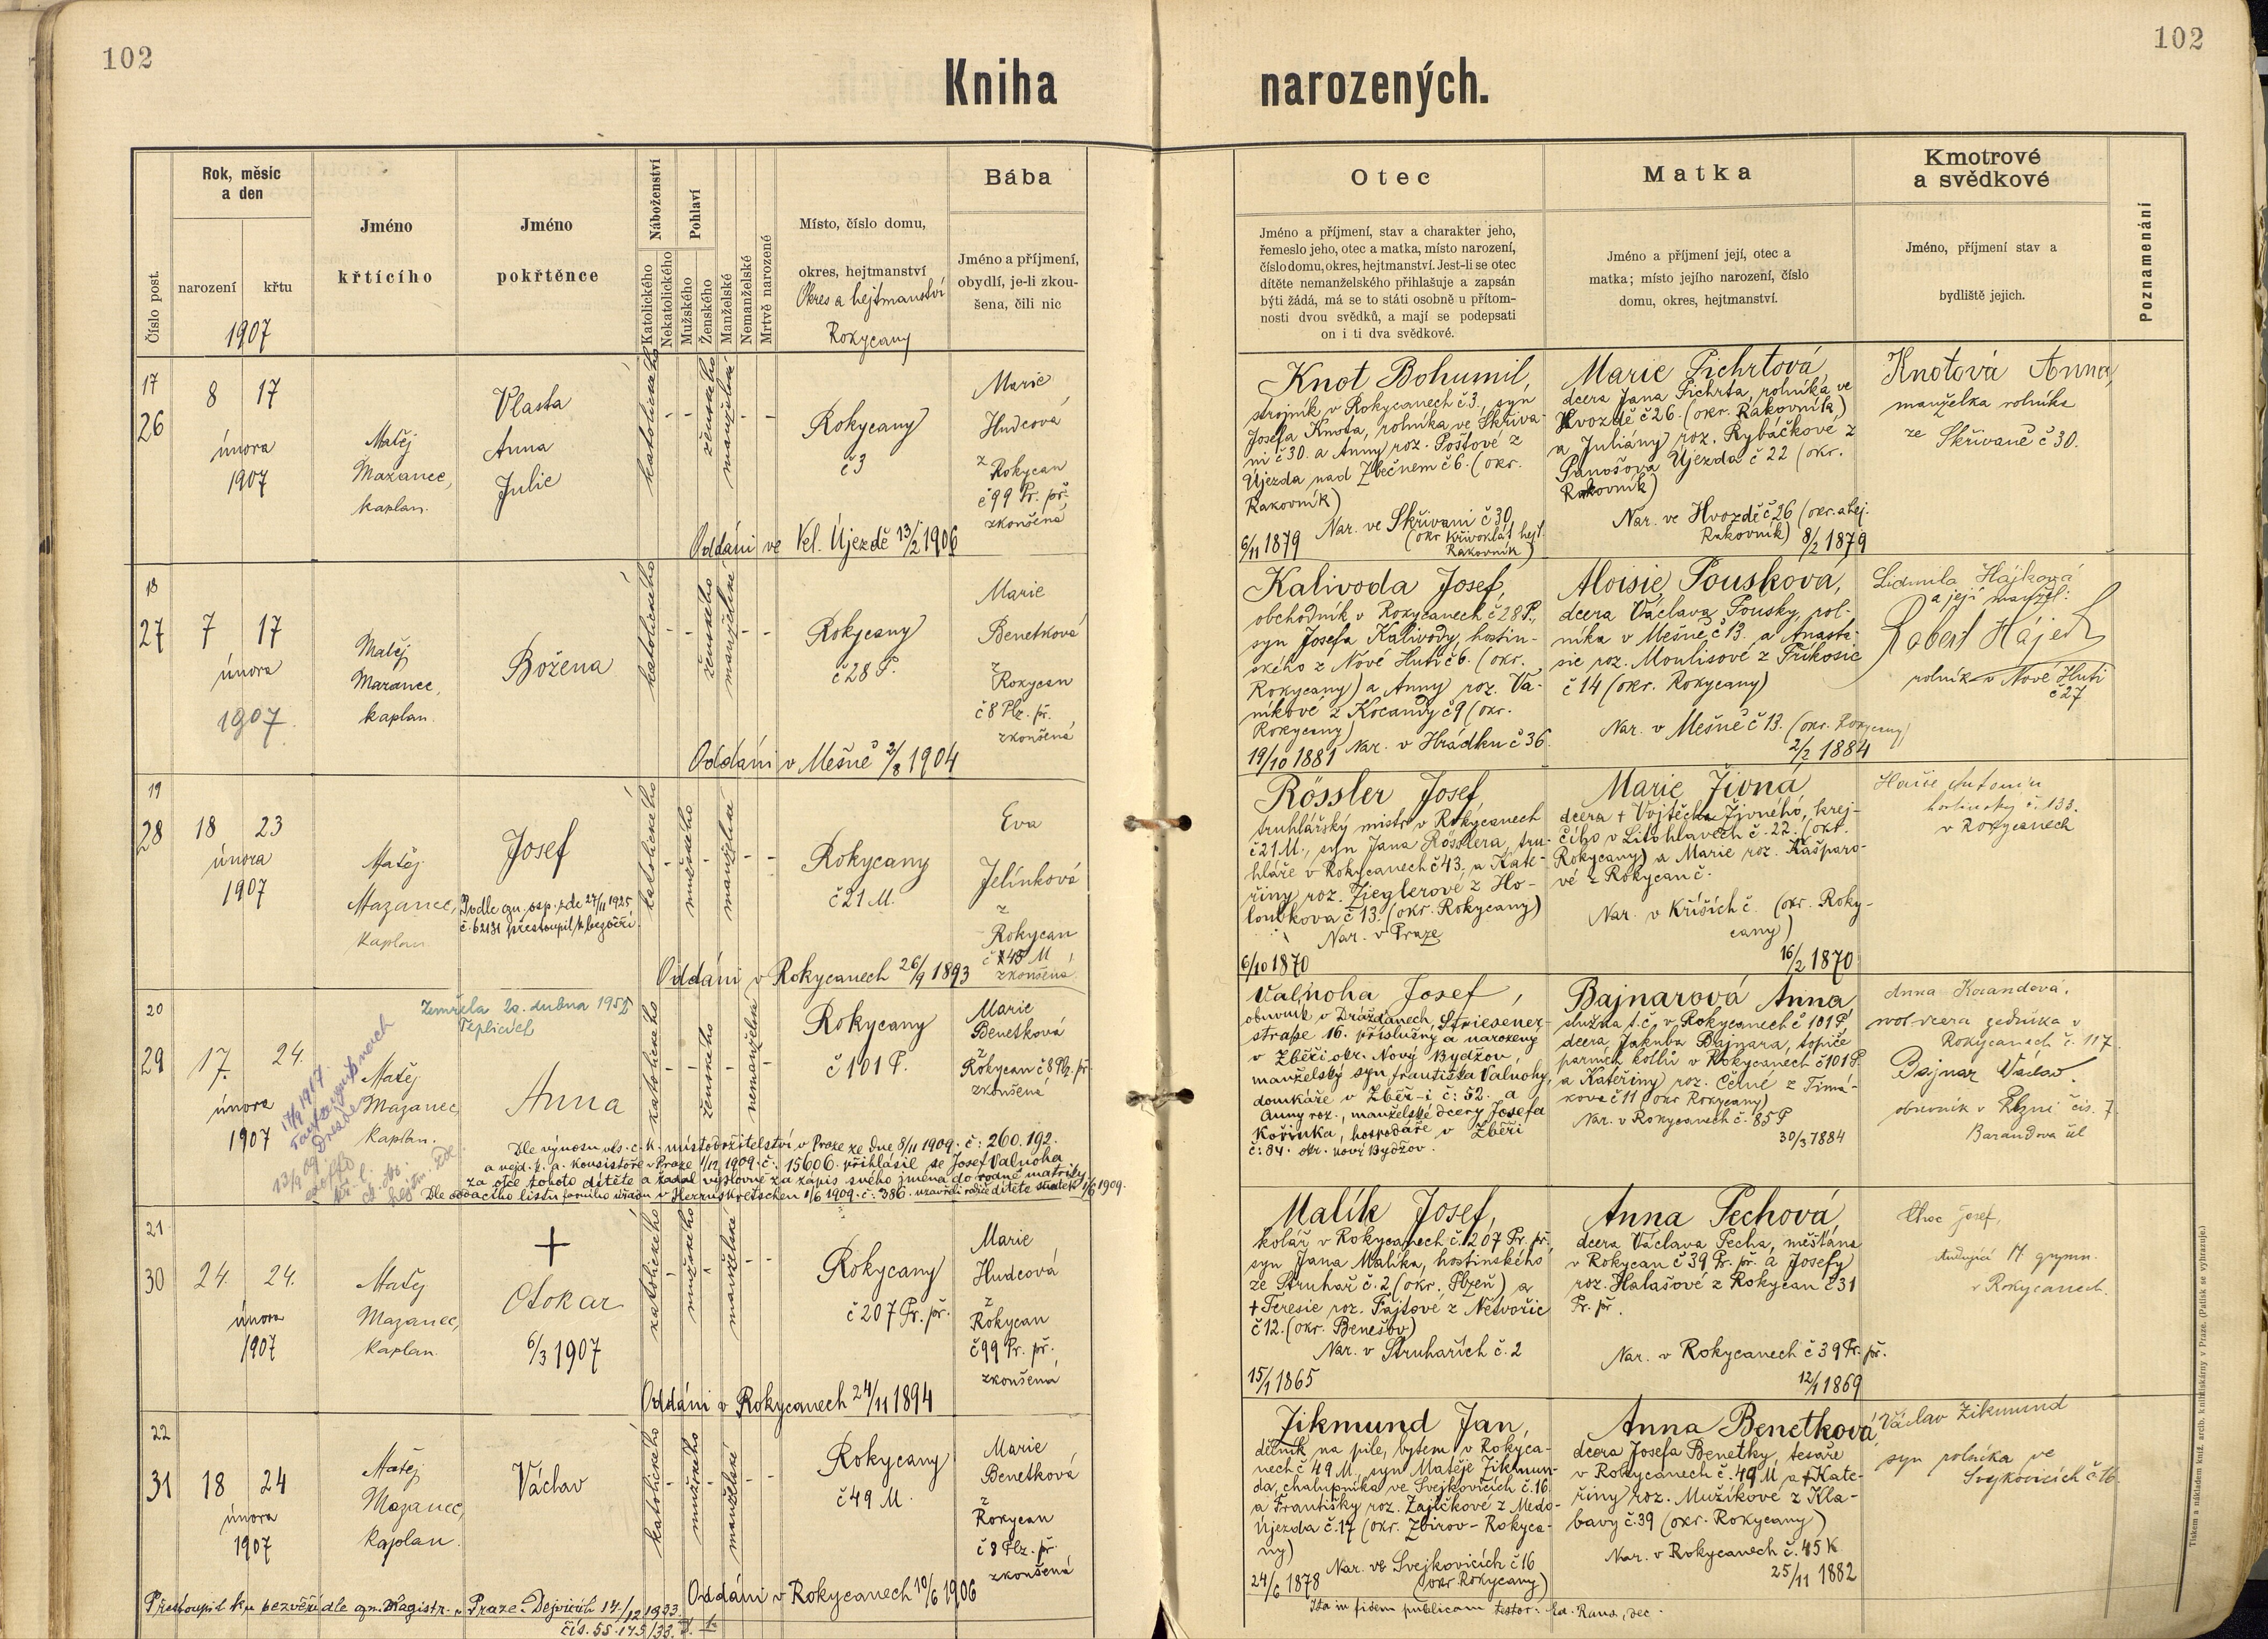 102
102
Kniha narozených.
Číslo post.
Rok, měsíc
a den
narození
křtu
1907
Jméno
křtícího
Jméno
pokřtěnce
Náboženství
Katolického
Nekatolického
Pohlaví
Mužského
Ženského
Manželské
Nemanželské
Mrtvě narozené
Místo, číslo domu,
okres, hejtmanství
Okres a hejtmanství
Rokycany
Bába
Jméno a příjmení,
obydlí, je-li zkou-
šena, čili nic
Otec
Jméno a příjmení, stav a charakter jeho,
řemeslo jeho, otec a matka, místo narození,
číslo domu, okres, hejtmanství. Jest-li se otec
dítěte nemanželského přihlašuje a zapsán
býti žádá, má se to státi osobně u přítom-
nosti dvou svědků, a mají se podepsati
on i ti dva svědkové.
Matka
Jméno a příjmení její, otec a
matka; místo jejího narození, číslo
domu, okres, hejtmanství.
Kmotrové
a svědkové
Jméno, příjmení stav a
bydliště jejich.
Poznamenání
17
26
8 17
února
1907
Matěj
Mazanec,
kaplan.
Vlasta
Anna
Julie
katolického
ženského
manželské
Rokycany
č 3
Marie
Hudcová
z Rokycan
č 99 Pr. př.
zkoušená
Oddáni ve Vel. Újezdě 13/2 1906
Knot Bohumil,
strojník v Rokycanech č 3., syn
Josefa Knota, rolníka ve Skřiva-
ni č 30. a Anny roz. Poštové z
Újezda nad Zbečnem č 6. (okr.
Rakovník)
Nar. ve Skřivani č 30
(okr Křivoklát hejt.
Rakovník)
6/11 1879
Marie Pichrtová,
dcera Jana Pichrta, rolníka ve
Hvozdě č 26. (okr. Rakovník)
a Juliány roz. Rybáčkové z
Panošova Újezda č 22 (okr.
Rakovník)
Nar. ve Hvozdě č 26 (okr. a hej.
Rakovník) 8/2 1879
Knotová Anna,
manželka rolníka
ze Skřivaně č 30.
18
27
7 17
února
1907.
Matěj
Mazanec,
kaplan.
Božena
katolického
ženského
manželské
Rokycany
č 28 P.
Marie
Benetková
z Rokycan
č 8 Plz. př.
zkoušená
Oddáni v Mešně 2/8 1904
Kalivoda Josef,
obchodník v Rokycanech č 28 P.,
syn Josefa Kalivody, hostin-
ského z Nové Huti č 6. (okr.
Rokycany) a Anny roz. Va-
níkové z Kocandy č 9 (okr.
Rokycany)
19/10 1881 Nar. v Hrádku č 36.
Aloisie Pousková,
dcera Václava Pousky, rol-
níka v Mešně č 13. a Anasta-
sie roz. Moulisové z Příkosic
č 14 (okr. Rokycany)
Nar. v Mešně č 13. (okr. Rokycany)
2/2 1884
Lidmila Hájková
a její manžel:
Robert Hájek
rolník v Nové Huti
č 27
19
28
18 23
února
1907
Matěj
Mazanec,
kaplan
Josef
Podle ozn. osp. ze dne 27/11 1925
č. 62131 přestoupil k bezvěří.
katolického
mužského
manželské
Rokycany
č 21 M.
Eva
Jelínková
z Rokycan
č 48 M
zkoušená.
Oddáni v Rokycanech 26/9 1893
Rössler Josef,
truhlářský mistr v Rokycanech
č 21 M., syn Jana Rösslera, tru-
hláře v Rokycanech č 43. a Kate-
řiny roz. Zieglerové z Ho-
loubkova č 13. (okr. Rokycany)
Nar. v Praze
6/10 1870
Marie Živná,
dcera + Vojtěcha Živného, krej-
čího v Litohlavech č. 22. (okr.
Rokycany) a Marie roz. Kašparo-
vé z Rokycan č.
Nar. v Křiších č. (okr. Roky-
cany)
16/2 1870
Antonín
hostinský č. 133.
v Rokycanech
20
29
17. 24.
února
1907
Matěj
Mazanec,
kaplan.
Zemřela 20. dubna 1952
Teplicích
Anna
katolického
ženského
nemanželské
Rokycany
č 101 P.
Marie
Benetková
z Rokycan č 8 Plz. př.
zkoušená
17/9 1917.
Dresden
Dle výnosu vys. c. k. místodržitelství v Praze ze dne 8/11 1909. č: 260.192.
a vejd. k. a. konsistoře v Praze 1/12 1909. č: 15606. přihlásil se Josef Valnoha
za otce tohoto dítěte a žádal výslovně za zápis svého jména do rodné matriky.
Dle oddacího listu farního úřadu v Herrnskretschen 1/6 1909. č: 386. uzavřeli rodiče dítěte sňatek 1/6 1909.
Valnoha Josef,
obuvník v Drážďanech, Striesener-
straße 16. příslušný a narozený
v Zběři okr. Nový Bydžov,
manželský syn Františka Valnohy,
domkáře v Zběř-i č: 52. a
Anny roz., manželské dcery Josefa
Kořínka, hospodáře v Zběři
č: 84. okr. Nový Bydžov.
Bajnarová Anna
služka t. č. v Rokycanech č 101 P,
dcera Jakuba Bajnara, topiče
parních kotlů v Rokycanech č 101 P.
a Kateřiny roz. Černé z Timá-
kova č 11 (okr Rokycany)
Nar. v Rokycanech č. 85 P
30/3 1884
Anna Kocandová,
dcera zedníka v
Rokycanech č. 117.
Bajnar Václav
obuvník v Plzni čís. 7.
Barandova ul
21
30
24. 24.
února
1907
Matěj
Mazanec,
kaplan.
+
Otokar
6/3 1907
katolického
mužského
manželské
Rokycany
č 207 Pr. př.
Marie
Hudcová
z Rokycan
č 99 Pr. př.
zkoušená
Oddáni v Rokycanech 24/11 1894
Malík Josef,
kolář v Rokycanech č. 207 Pr. př.
syn Jana Malíka, hostinského
ze Struhař č. 2 (okr. Plzeň) a
+ Teresie roz. Fajtové z Netvořic
č 12. (okr. Benešov)
Nar. v Struhařích č. 2
15/1 1865
Anna Pechová,
dcera Václava Pecha, měšťana
v Rokycan č 39 Pr. př. a Josefy
roz. Halašové z Rokycan č 31
Pr. př.
Nar. v Rokycanech č 39 Pr. př.
12/1 1869
Choc Josef,
gymn.
v Rokycanech.
22
31
18 24
února
1907
Matěj
Mazanec,
kaplan.
Václav
katolického
mužského
manželské
Rokycany
č 49 M.
Marie
Benetková
z Rokycan
č 8 Plz. př.
zkoušená
Oddáni v Rokycanech 10/6 1906
Přestoupil ku bezvěří dle ozn. Magistr. v Praze-Dejvicích 14./12 1933.
čís. 55.175/33.
Zikmund Jan,
dělník na pile, bytem v Rokyca-
nech č 49 M., syn Matěje Zikmun-
da, chalupníka ve Svejkovicích č. 16.
a Františky roz. Zajíčkové z Medo-
Újezda č. 17 (okr. Zbirov - Rokyca-
ny)
Nar. ve Svejkovicích č 16
(okr. Rokycany)
24/6 1878
Anna Benetková,
dcera Josefa Benetky, tesaře
v Rokycanech č. 49 M a + Kate-
řiny roz. Mužíkové z Kla-
bavy č. 39 (okr. Rokycany)
Nar. v Rokycanech č. 45 K
25/11 1882
Václav Zikmund
syn rolníka ve
Svejkovicích č 16.
Ita in fidem publicam testor: Ed. Raus, dec.
Tiskem a nákladem kníž. arcib. knihtiskárny v Praze. (Patisk se vyhrazuje.)